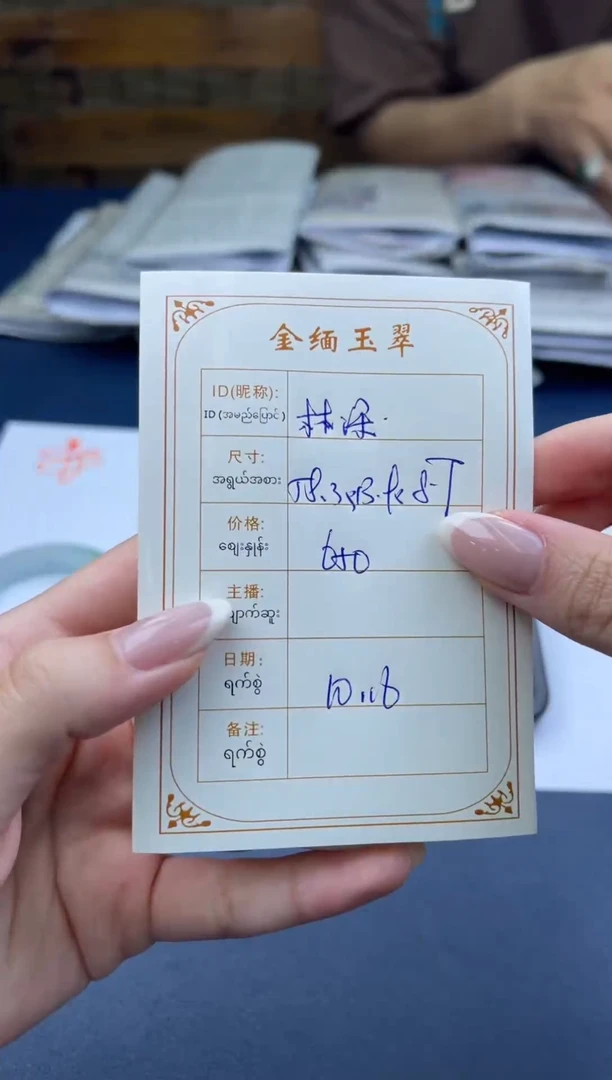 金缅玉翠
ID(昵称):
ID (အမည်ပြောင်)
林深
尺寸:
အရွယ်အစား
价格:
ဈေးနှုန်း
650
主播:
日期:
ရက်စွဲ
10.16
备注:
ရက်စွဲ